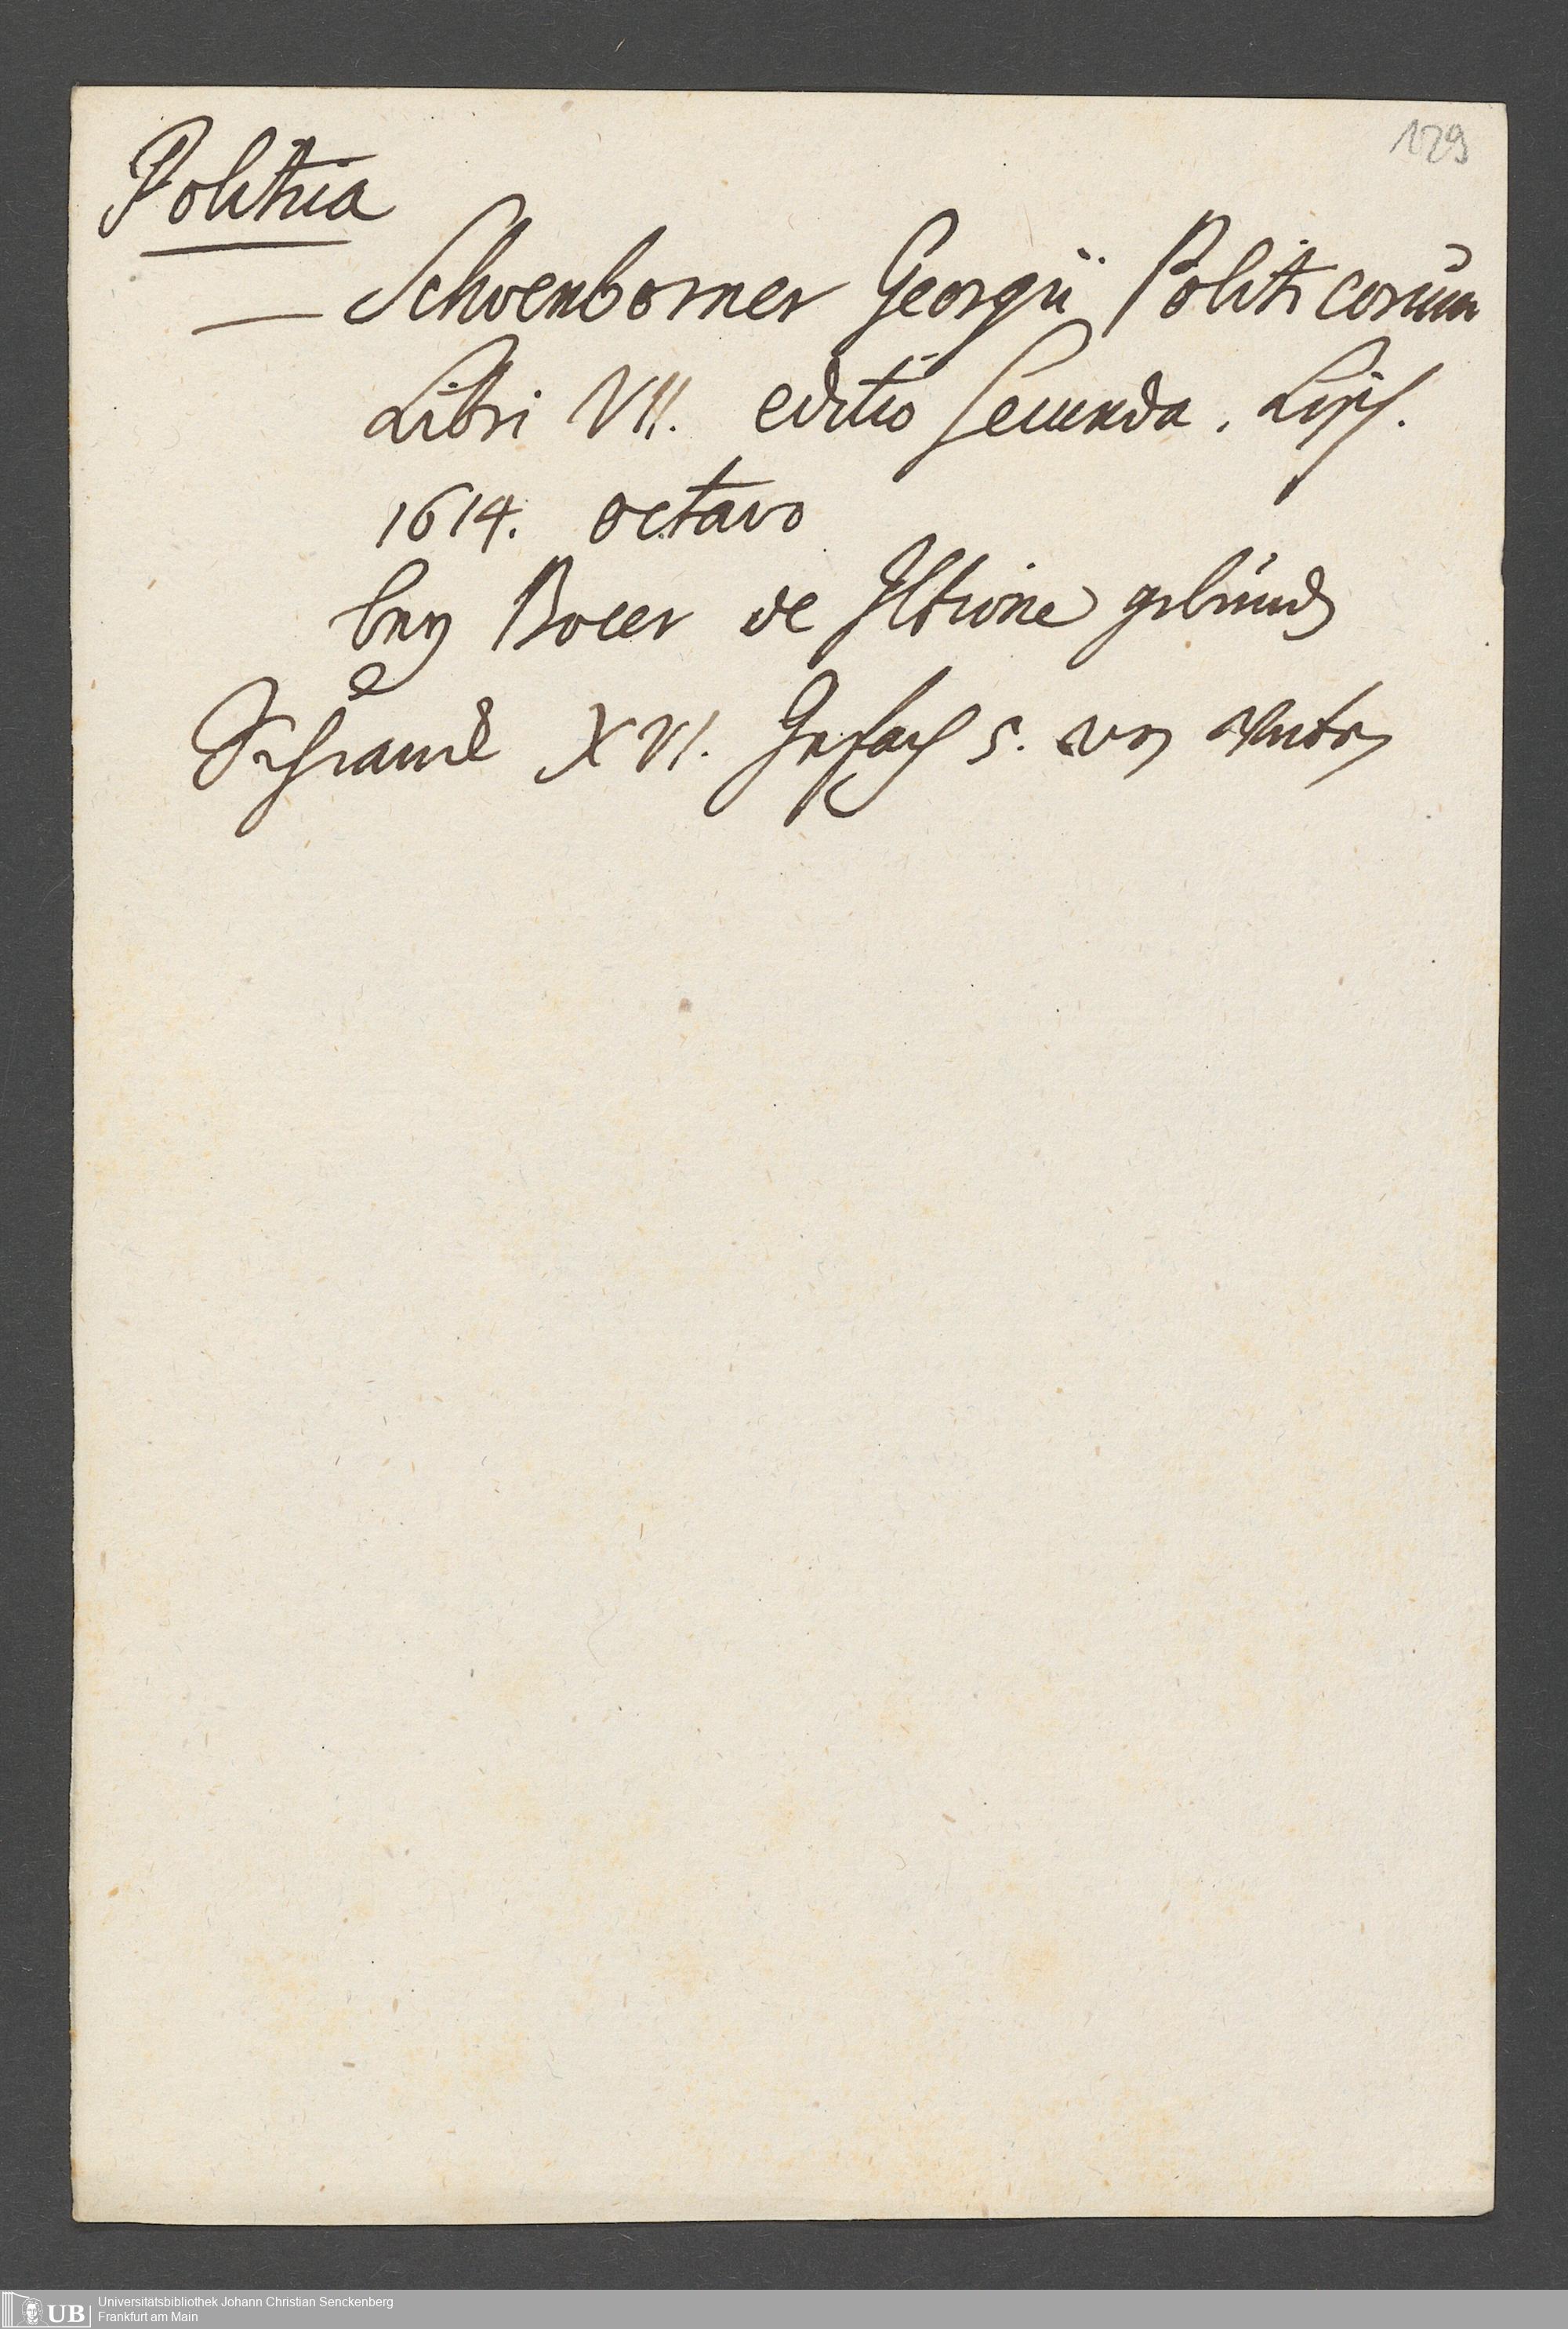 129
Politica
Schoenborner Georgii Politicorum
Libri VII. editio secunda. Lips.
1614. octavo
bey Bocer de gebunden
Schranck XVI. Gefach 5. von unten
UB Universitätsbibliothek Johann Christian Senckenberg
Frankfurt am Main